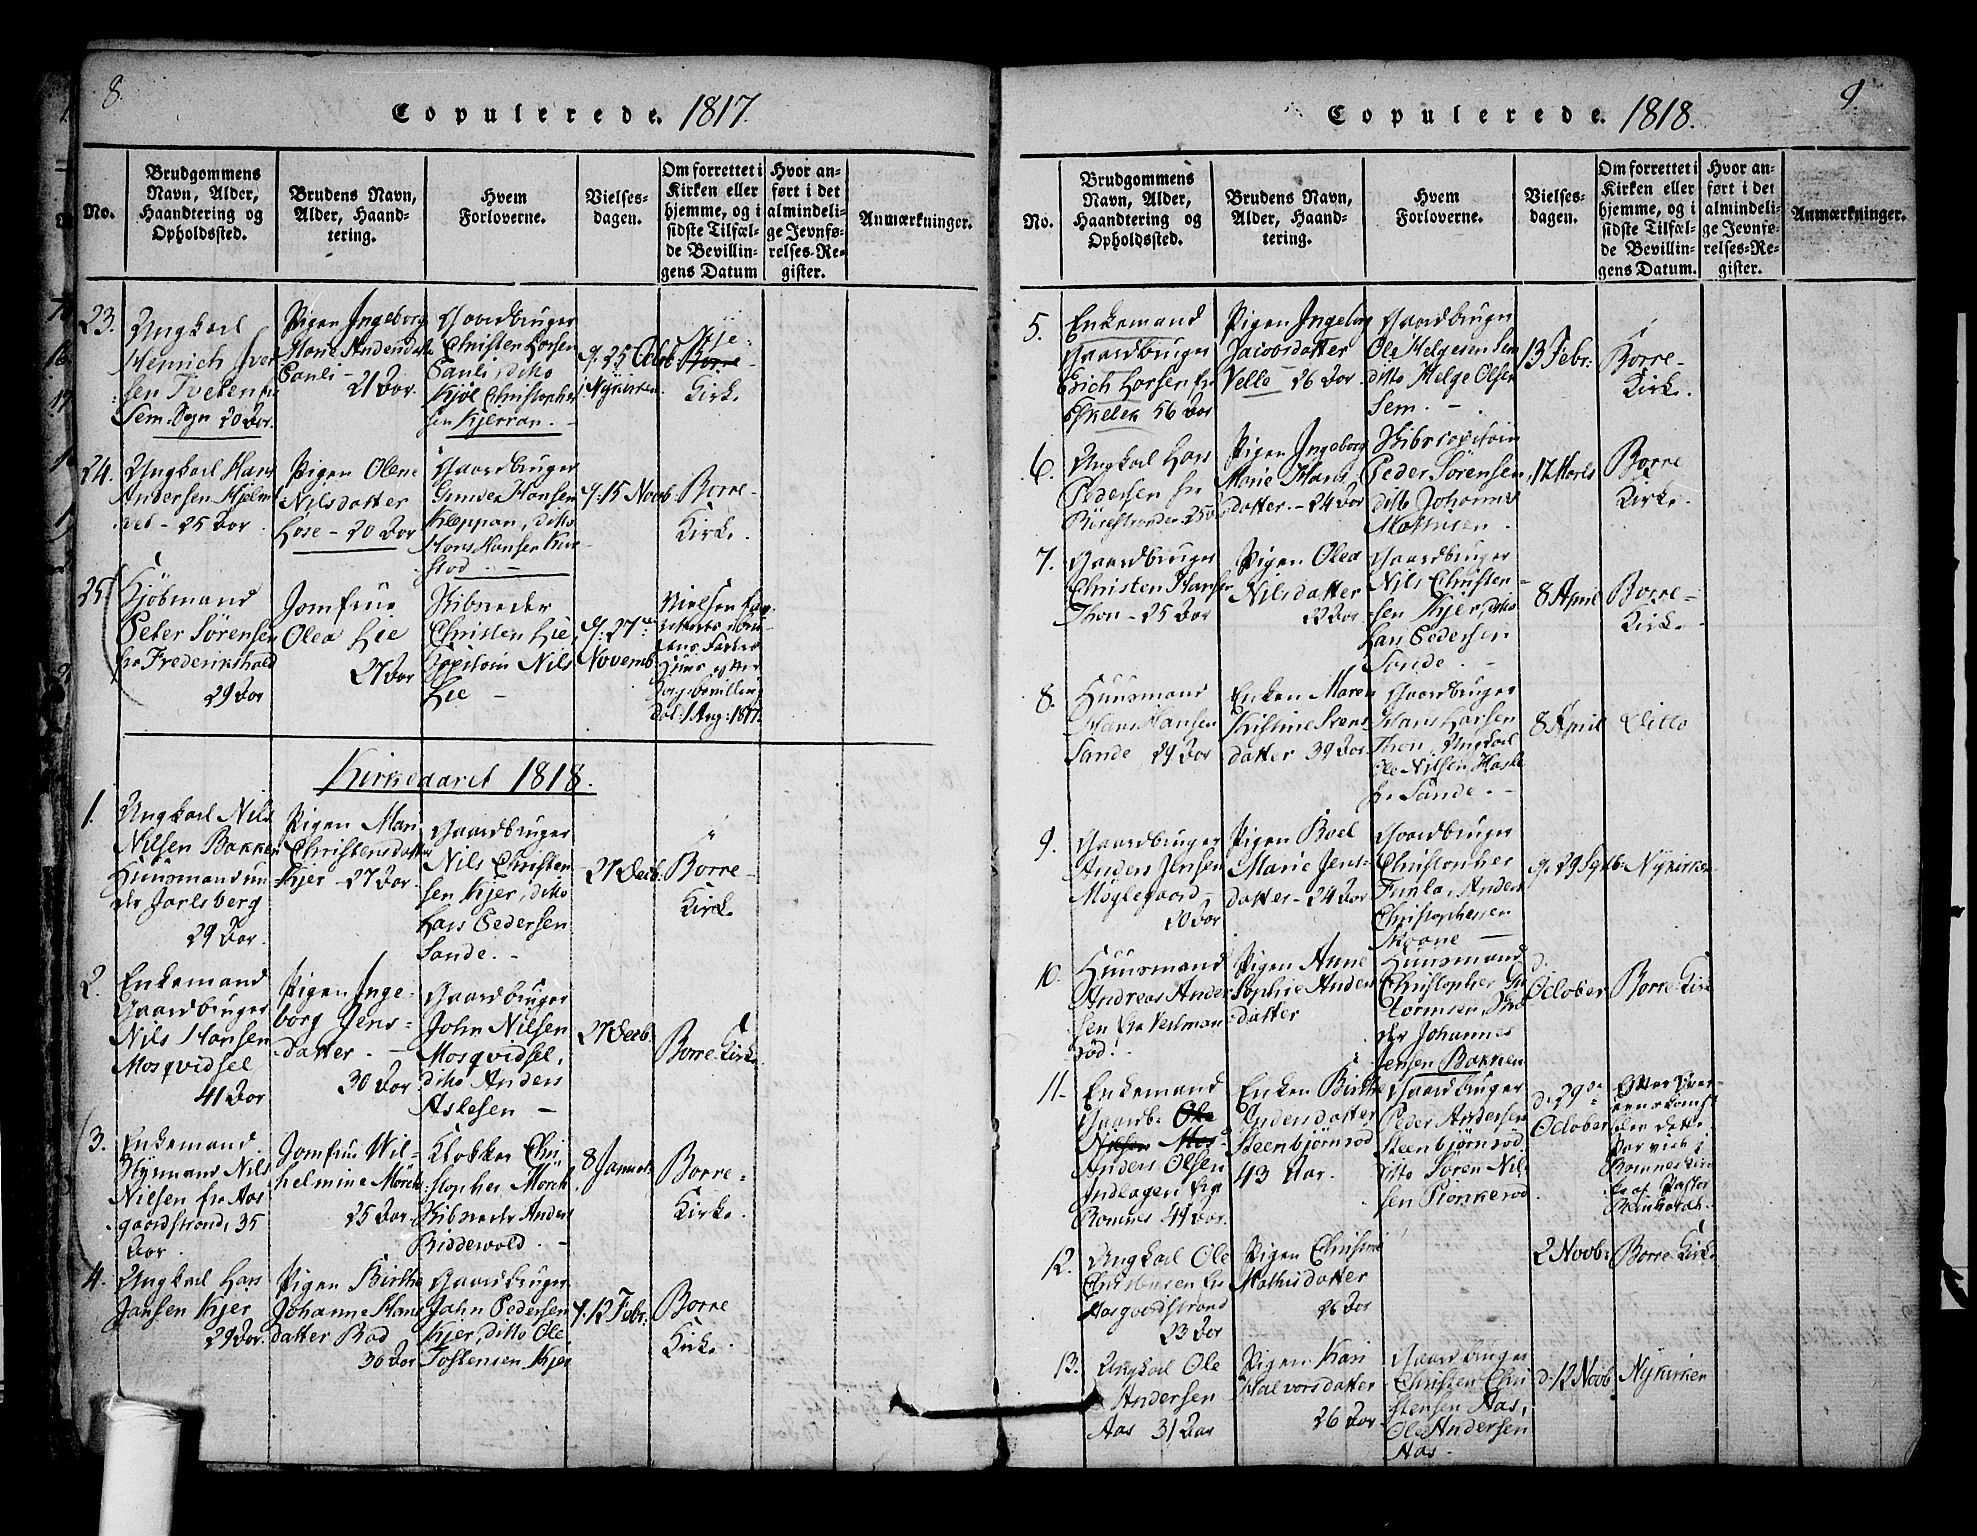 8.
Copulerede. 1817.
No.
Brudgommens
Navn, Alder,
Haandtering og
Opholdssted.
Brudens Navn,
Alder, Haand-
tering.
Hvem
Forloverne.
Vielses-
dagen.
Om forrettet i
Kirken eller
hjemme, og i
sidste Tilfæl-
de Bevillin-
gens Datum
Hvor an-
ført i det
almindeli-
ge Jevnfø-
relses-Re-
gister.
Anmærkninger.
23.
Ungkarl
Henrich Iver
sen Tveten fra
Sem Sogn 20 Aar.
Pigen Ingeborg
Marie Andersdatter
Pauli -
21 Aar.
Gaardbruger
Christen Larsen
Pauli, ditto
Kjøl Christopher
sen Kjerran. -
d. 25 Octob.
i Nykirken
Nye
Borre
Kirke
24.
Ungkarl Hans
Andersen Hjelm
25 Aar
Pigen Olene
Nilsdatter
20 Aar
Gaardbruger
Gunder Hansen
Kloppan, ditto
Hans Hansen
d. 15 Novb
Borre-
Kirke.
25
Kjøbmand
Peter Sørensen
fra Frederikshald
29 Aar
Jomfrue
Olea Lie
27 Aar
Skibsreder
Christen Lie,
Capitain Nils
Lie -
d. 27de
Novemb
Dat. 1 Aug: 1817.
Kirkeaaret 1818.
1.
Ungkarl Nils
Nilsen Bakken
Huusmand un
der Jarlsberg
29 Aar.
Pigen Mari
Christensdatter
Kjer - 27 Aar
Gaardbruger
Nils Christen
sen Kjer, ditto
Lars Pedersen
Sande. -
27 Decb.
Borre-
Kirke
2.
Enkemand
Gaardbruger
Nils Hansen
Mosqvidsel
41 Aar
Pigen Inge-
borg Jens-
datter. -
30 Aar
Gaardbruger
John Nilsen
Mosqvidsel,
ditto Anders
Aslesen -
27 Decb.
Borre Kirke
3.
Enkemand
Styrmand Nils
Nilsen fra Aas
gaardstrand, 35
Aar.
Jomfrue Wil-
helmine Mörch
25 Aar
Klokker Chri
stopher Mörch
Skibsreder Anders
Riddervold. -
8 Januar.
Borre-
Kirke.
4.
Ungkarl Lars
Jansen Kjer
29 Aar.
Pigen Birthe
Johanne Hans
datter Rad
30 Aar
Gaardbruger
Jahn Pedersen
Kjer, ditto Ole
Tostensen Kjer
d. 12 Febr.
Borre
Kirke.
9.
Copulerede. 1818.
No.
Brudgommens
Navn, Alder,
Haandtering og
Opholdssted.
Brudens Navn,
Alder, Haand-
tering.
Hvem
Forloverne.
Vielses-
dagen.
Om forrettet i
Kirken eller
hjemme, og i
sidste Tilfæl-
de Bevillin-
gens Datum.
Hvor an-
ført i det
almindeli-
ge Jevnfø-
relses-Re-
gister.
Anmærkninger.
5.
Enkemand
Gaardbruger
Erich Larsen fra
56 Aar
Pigen Ingeborg
Jacobsdatter
Velle - 26 Aar
Gaardbruger
Ole Helgesen Sem
ditto Helge Olsen
Sem. -
13 Febr.
Borre-
Kirke.
6.
Ungkarl Lars
Pedersen fra
Pigen Ingeborg
Marie Hans
datter. - 24 Aar
Skibscapitain
Peder Sørensen
ditto Johannes
17 Marts
Borre
Kirke.
7.
Gaardbruger
Christen Hansen
Thon - 25 Aar
Pigen Olea
Nilsdatter
22 Aar
Gaardbruger
Nils Christen-
sen Kjer, ditto
Lars Pedersen
Sande. -
8 April
Borre-
Kirke.
8.
Huusmand
Hans Hansen
Sande 29 Aar
Enken Maren
Kristine Svens
datter 39 Aar
Gaardbruger
Hans Larsen
Thon, Ungkarl
Ole Nilsen
fra Sande. -
8 April
Ditto
9.
Gaardbruger
Anders Jensen
Møylegaard -
20 Aar
Pigen Boel
Marie Jens-
datter - 24 Aar
Gaardbruger
Christopher
Anders
Christophersen
Skoane -
d. 29 Septb.
Nykirken
10.
Huusmand
Andreas Ander
sen fra
rød.
Pigen Anne
Sophie Anders
datter
Huusmand
Christopher
Johannes
Jensen Bakken
d.
October
Borre Kirke
11.
Enkemand
Gaardb: Ole
Nilsen Mos-
Anders Olsen
Indlagen fra
Romnes 44 Aar.
Enken Birthe
Andersdatter
Steenbjørnsrød
43 Aar.
Gaardbruger
Peder Andersen
Steenbjørnsrød
ditto Søren Nil
sen
d. 29de
October
Efter Over-
eenskomst
der dette
Par viet i
Romnes Kir
ke af Pastor
Reinhardt.
12.
Ungkarl Ole
Christensen fra
Aasgaardstrand
23 Aar
Pigen Christine
Mathisdatter
26 Aar
2 Novb:
Borre Kirke
13.
Ungkarl Ole
Andersen
Aas 31 Aar
Pigen Kari
Halvorsdatter
26 Aar
Gaardbruger
Christen Chri
stensen Aas,
Ole Andersen
Aas.
d. 12 Novb.
Nykirken